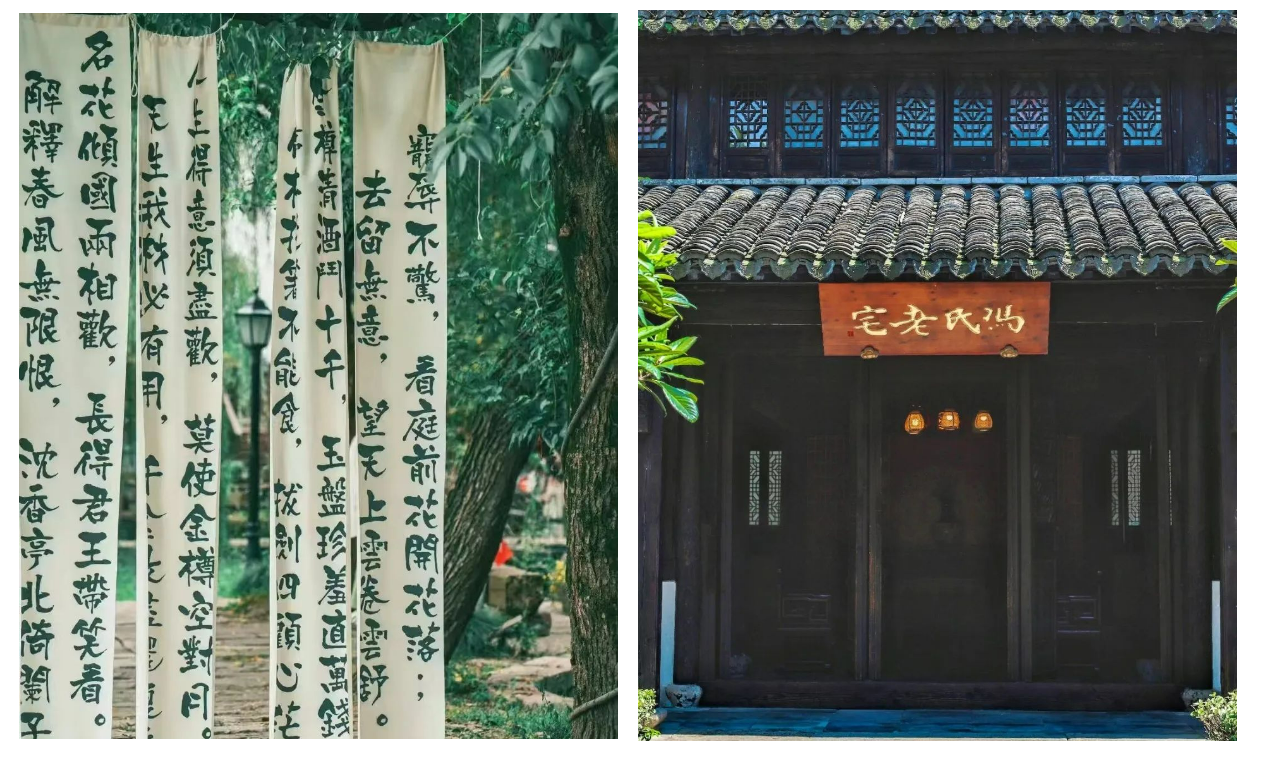 寵辱不驚，看庭前花開花落；，
去留無意，望天上雲卷雲舒。
樽清酒鬥十千，玉盤珍羞直萬錢
杯投箸不能食，拔劍四顧心茫
生得意須盡歡，莫使金樽空對月。
天生我材必有用，千
名花傾國兩相歡，長得君王帶笑看。
解釋春風無限恨，沈香亭北倚闌干
馮氏老宅